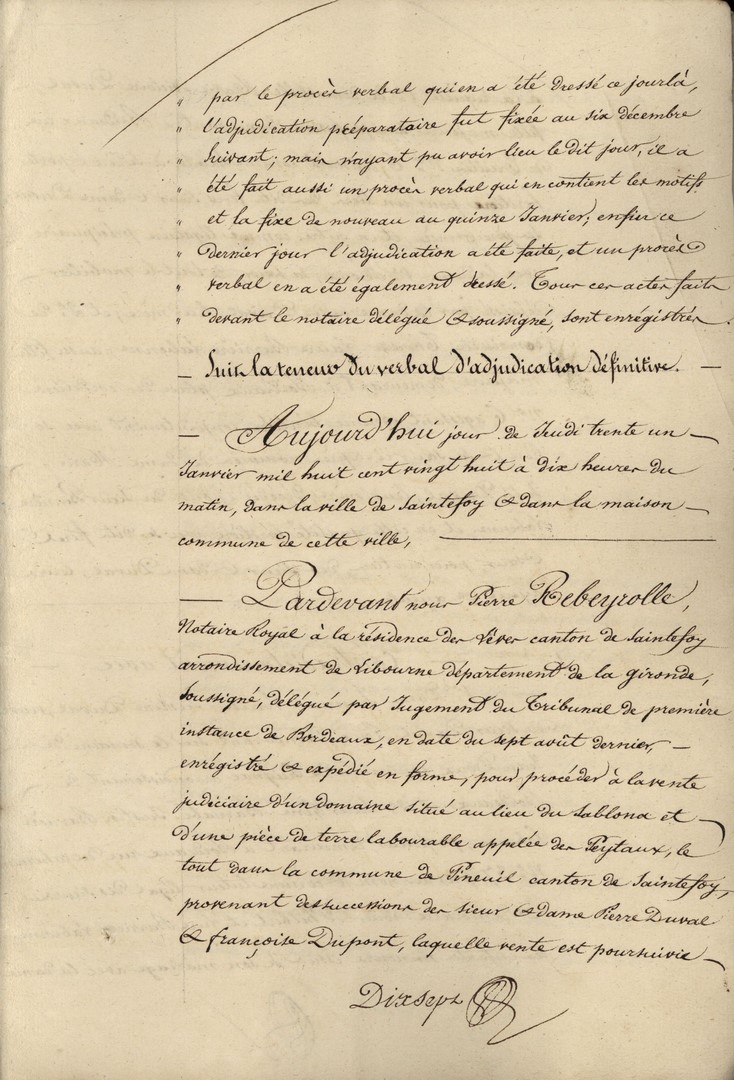 " par le procès verbal qui en a été dressé ce jour là,
" l'adjudication préparatoire fut fixée au six décembre
" suivant; mais n'ayant pu avoir lieu le dit jour, il a
" été fait aussi un procès verbal qui en contient les motifs
" et la fixe de nouveau au quinze Janvier; enfin ce
" dernier jour l'adjudication a été faite, et un procès
" verbal en a été également dressé. Tous ces actes faits
" devant le notaire délégué & soussigné, sont enrégistrés.
— Suit la teneur du verbal d'adjudication définitive. —
— Aujourd'hui jour de Jeudi trente un —
Janvier mil huit cent vingt huit à dix heures du
matin, dans la ville de Saintefoy & dans la maison —
commune de cette ville, —
— Pardevant nous Pierre Rebeyrolle,
Notaire Royal à la résidence des Lêves canton de Saintefoy
arrondissement de Libourne département de la gironde,
soussigné, délégué par Jugement du Tribunal de première
instance de Bordeaux, en date du sept août dernier, —
enrégistré & expédié en forme, pour procéder à la vente
judiciaire d'un domaine situé au lieu du Sablona et —
d'une pièce de terre labourable appelée des Peytaux, le
tout dans la commune de Pineuil canton de Saintefoy,
provenant des successions des sieur & dame Pierre Duval
& françoise Dupont, laquelle vente est poursuivie —
Dix sept